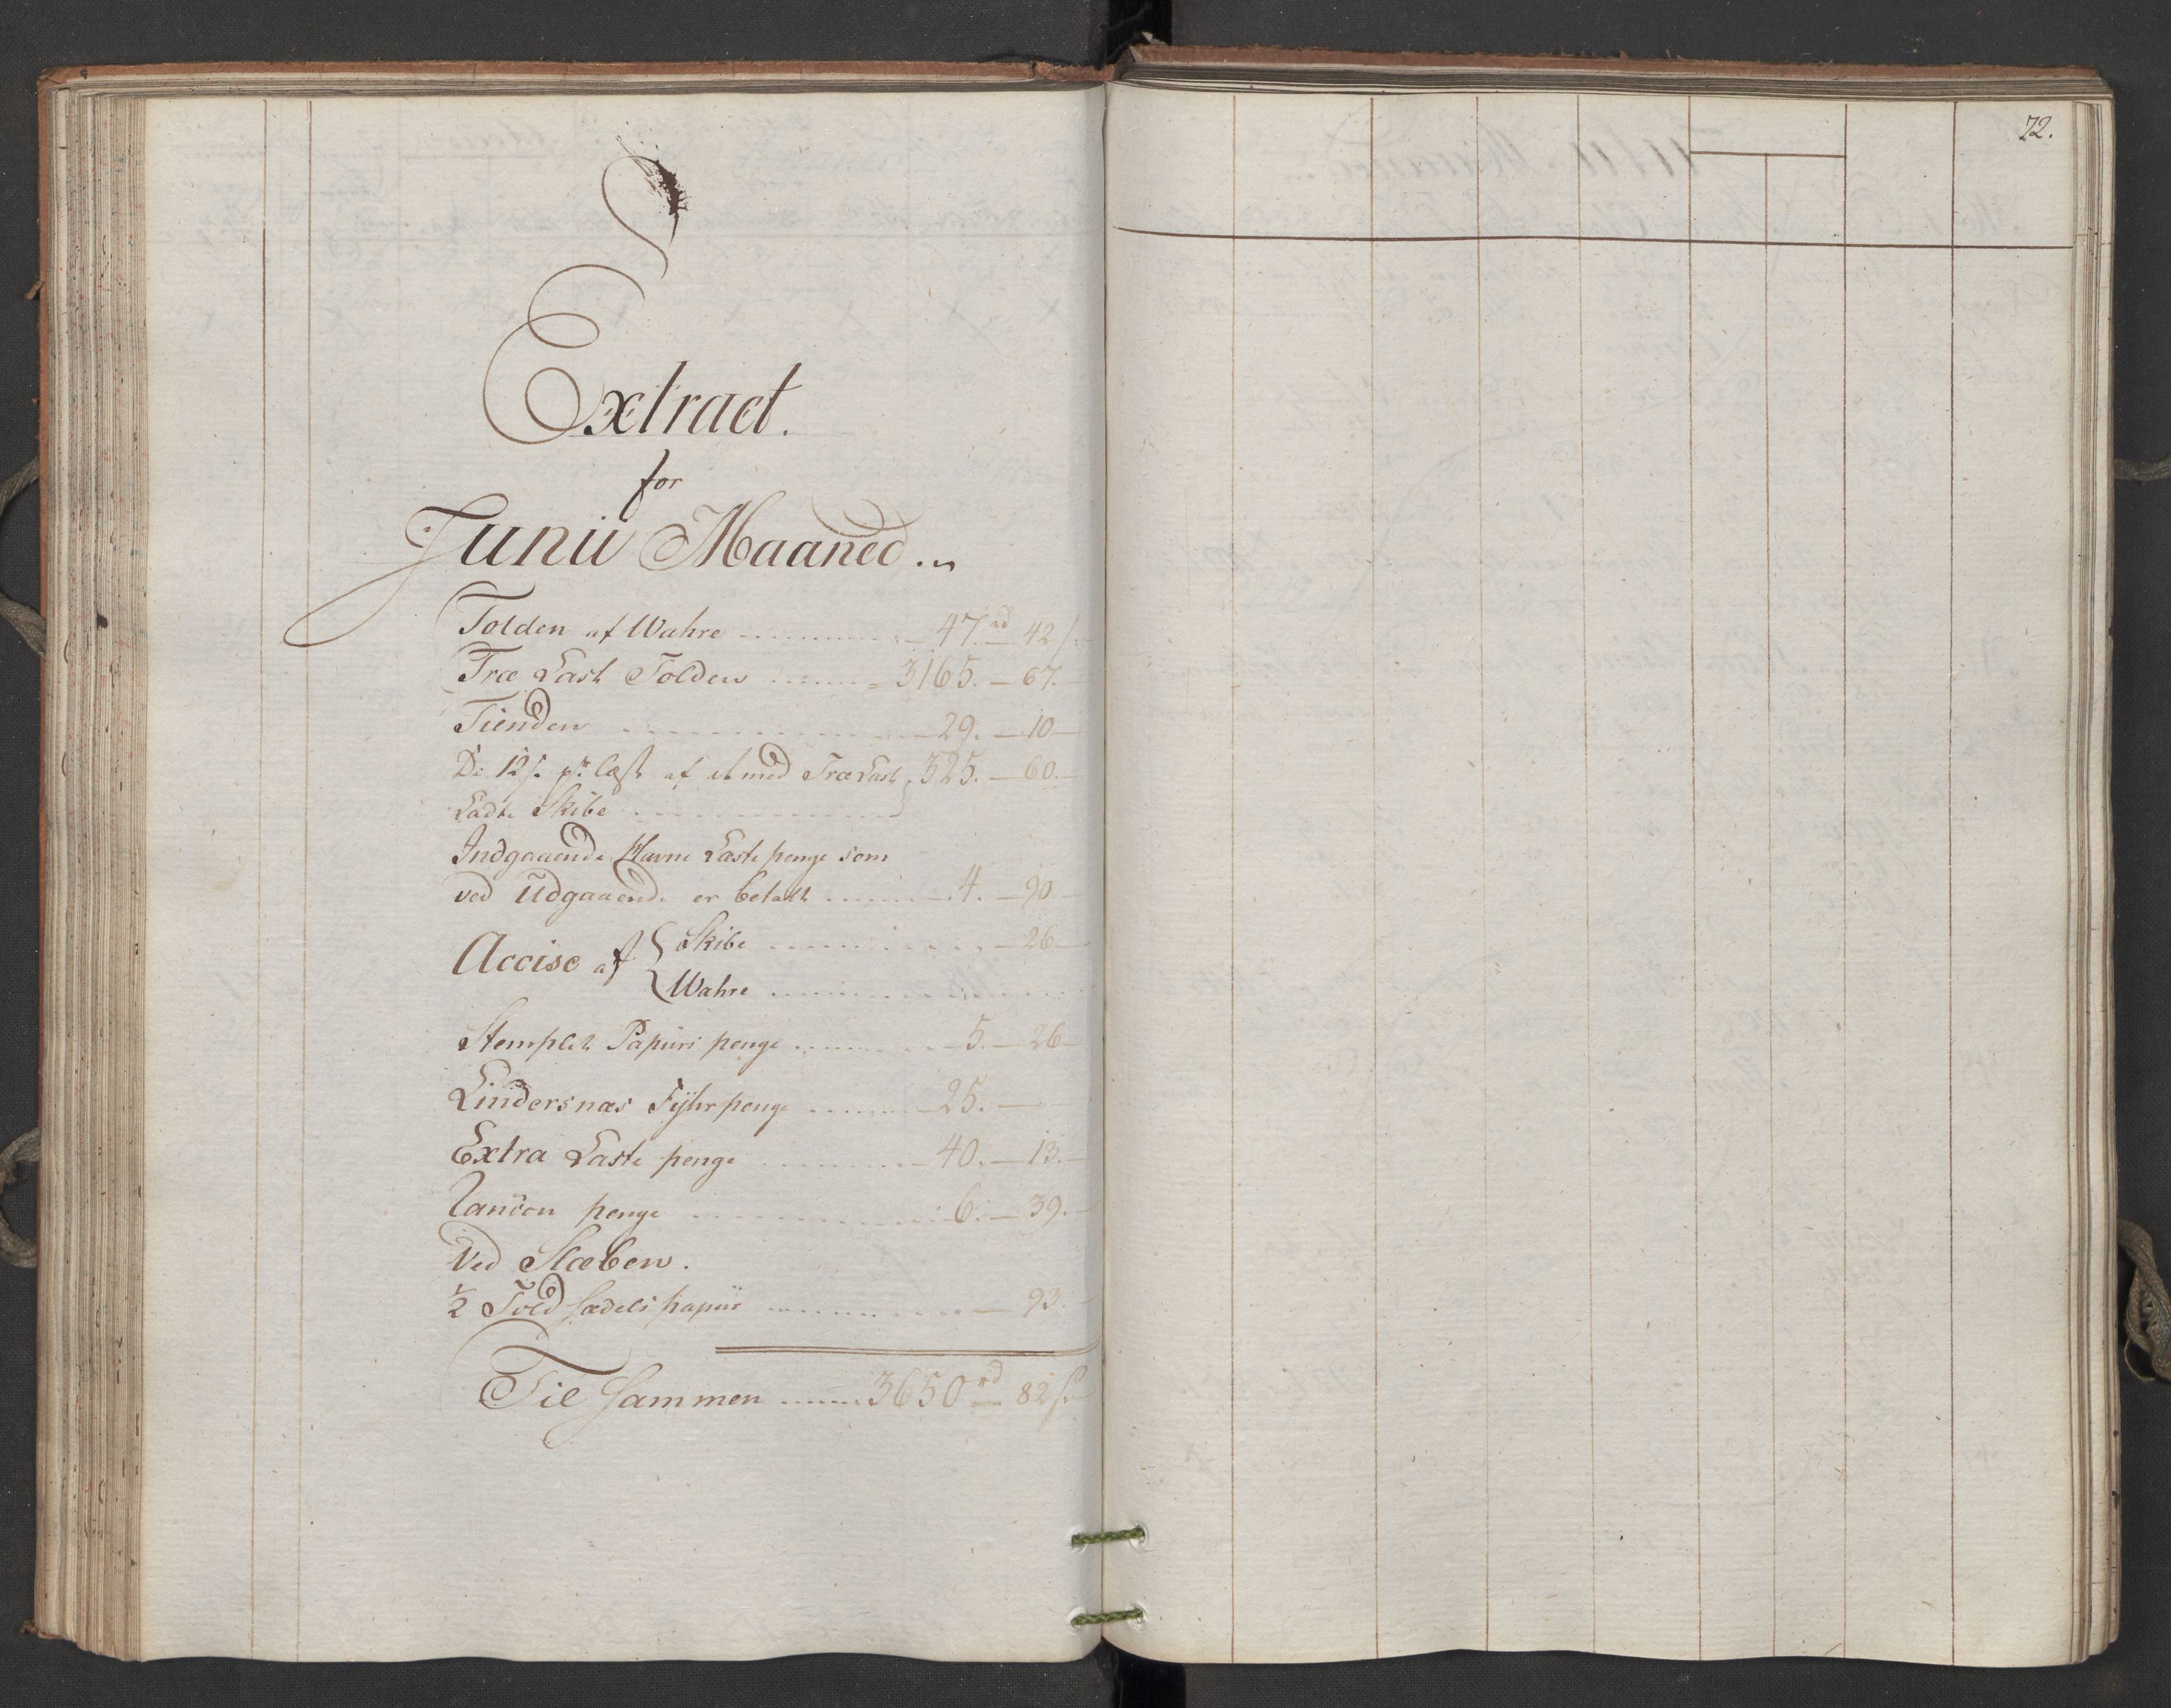 Extract.
for
Junii Maaned ..
Tolden af Wahre ........ 47.rd 42 s.
Træ Last Tolden ........ 3165. — 67. —
Tienden ........ 29. — 10 —
De 12 s. pr. læst af med Træ Last 325. — 60. —
Ladte Skibe ........
Indgaaende Havne Laste penge som
ved Udgaaende er betalt ........ 4. — 90. —
Accise af { Skibe ........ — 26 —
{ Wahre ........
Stemplet Papiirs penge ........ 5. — 26 —
Lindersnæs Fyhr penge ........ 25. —
Extra Laste penge ........ 40. — 13. —
Rancon penge ........ 6. — 39. —
Ved Stæben.
1/2 Told sædels papiir ........ — 93. —
Til sammen ........ 3650 rd 82 s.
72.